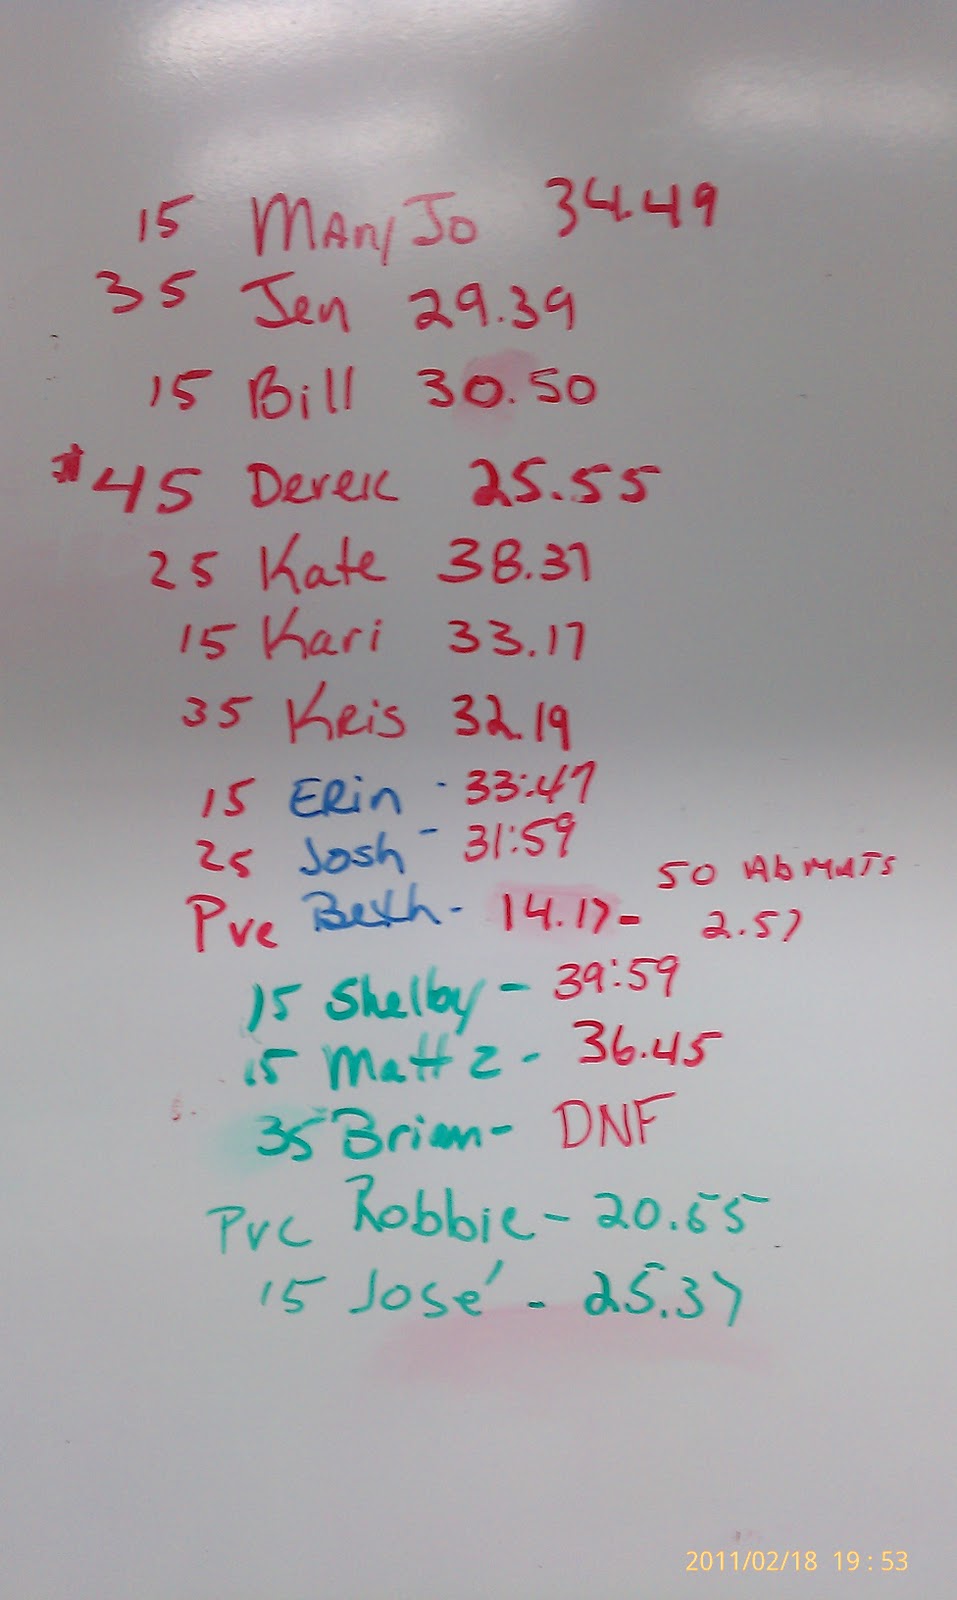 15 Mary Jo 34.49
35 Jen 29.39
15 Bill 30.50
#45 Derek 25.55
25 Kate 38.37
15 Kari 33.17
35 Kris 32.19
15 Erin - 33:47
25 Josh - 31:59
50 AbMats
Pvc Beth - 14.17 - 2.57
15 Shelby - 39:59
15 Matt Z - 36.45
35 Brian - DNF
Pvc Robbie - 20.55
15 José - 25.37
2011/02/18 19:53